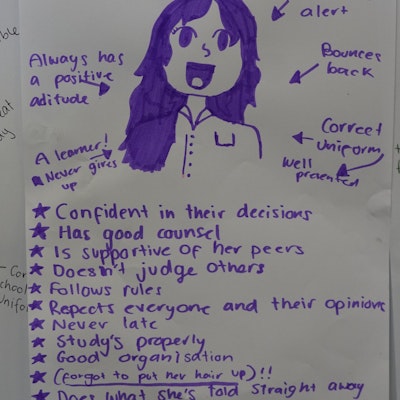 alert
Always has
a positive
aditude
Bounces
back
Correct
uniform
well
presented
A learner!
Never gives
up
★ Confident in their decisions
★ Has good counsel
★ Is supportive of her peers
★ Doesn't judge others
★ Follows rules
★ Repects everyone and their opinions
★ Never late
★ Study's properly
★ Good organisation
★ (forgot to put her hair up)!!
★ Does what she's told straight away